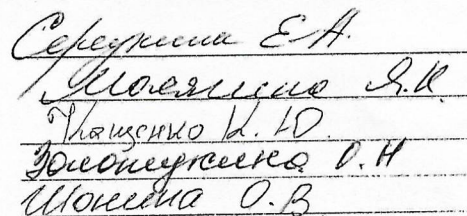 Середкина Е.А.
Молякина Я.К.
Иащенко К.Ю.
Золотухина О.Н
Шонина О.В